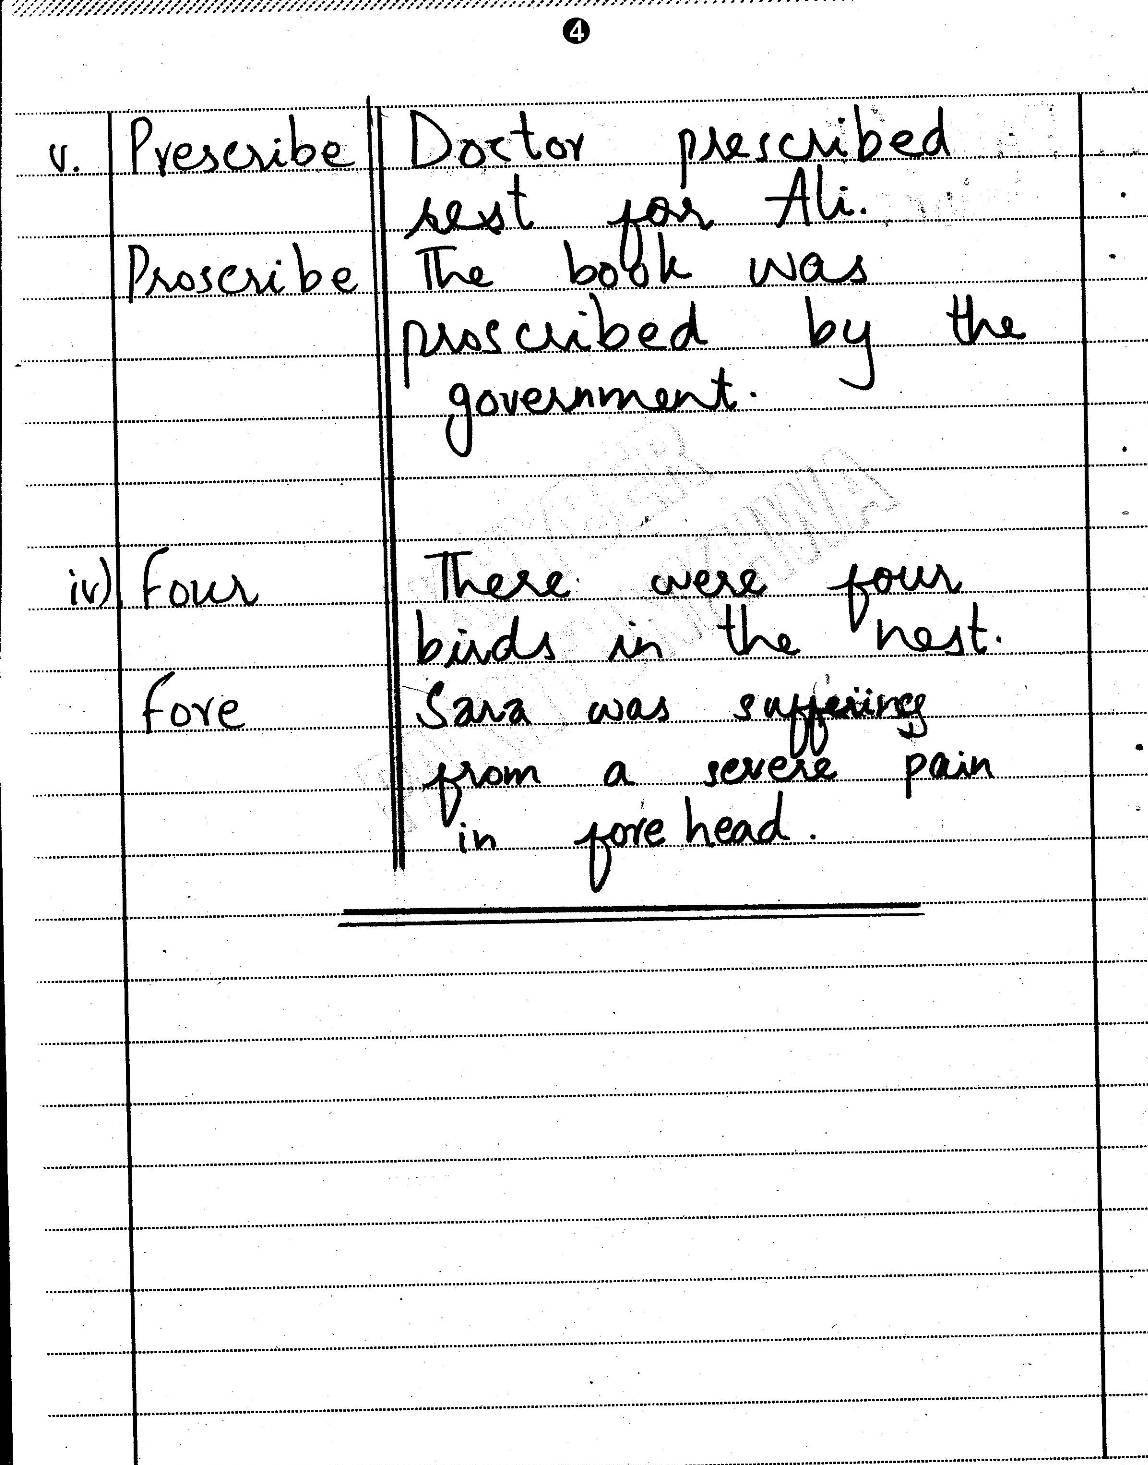 4
v. Prescribe Doctor prescribed
rest for Ali.
Proscribe The book was
proscribed by the
government.
iv) Four There were four
birds in the nest.
Fore Sara was suffering
from a severe pain
in fore head.